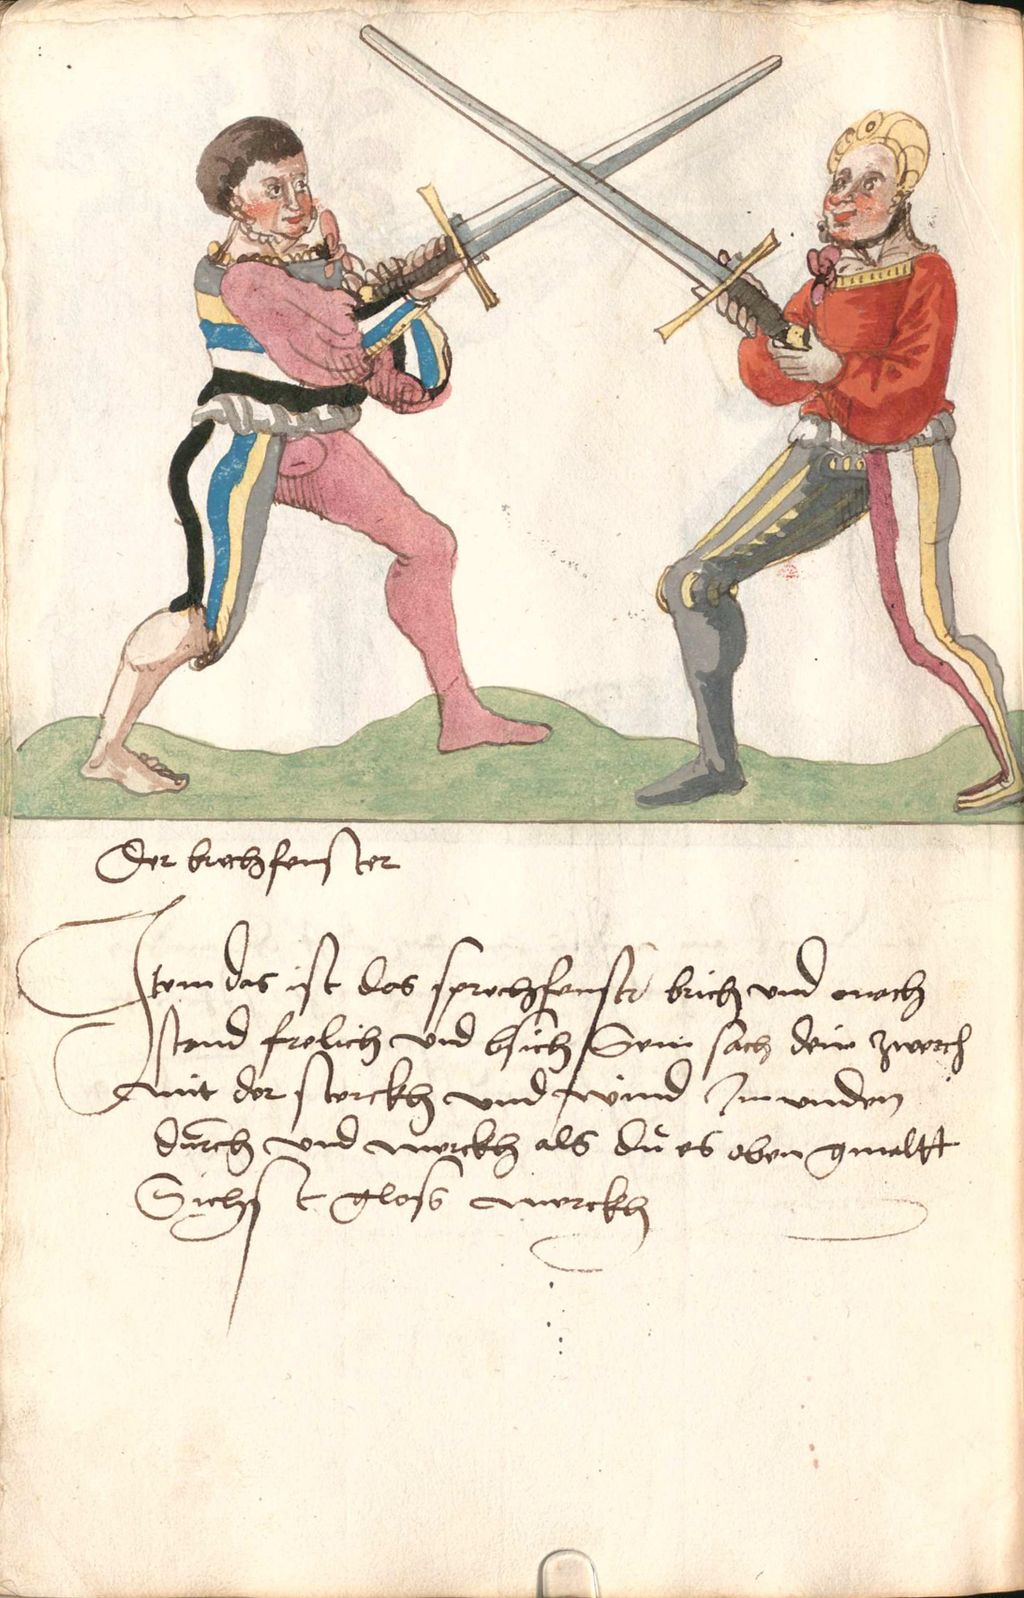 Der brechfenster
Item das ist das sprechfenster brich und mach
stand frelich und bsich Sein sach dein zwerch
mit der sterckh und wind Im unden
durch und merckh als du es oben gmaltt
Sichst gloss merckh